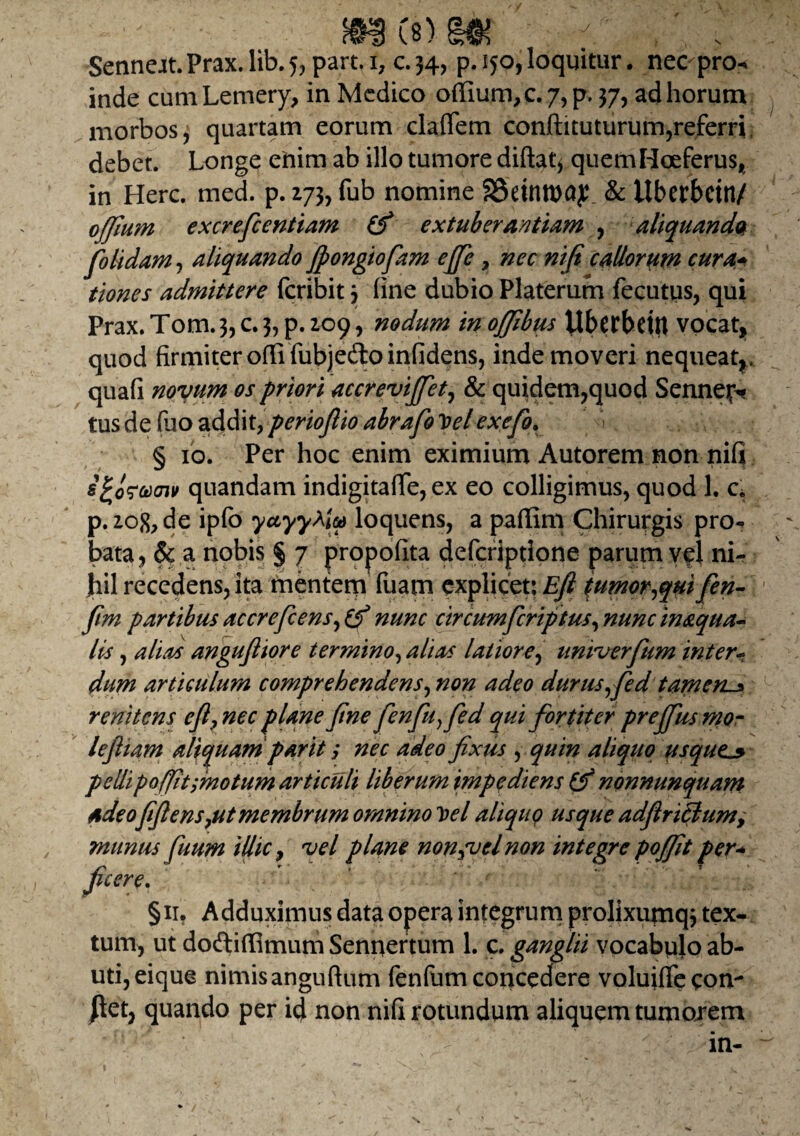 (8)
Sennert. Prax. lib. 5, part. 1, c. 34, p. 150, loquitur. nec pro-
inde cum Lemery, in Medico ossium, c. 7, p. 37, ad horum
morbos, quartam eorum classem constituturum, referri
debet. Longe enim ab illo tumore distat, quem Hœferus,
in Herc. med. p. 273, sub nomine Beinwax & Uberbein/
ossium excrescentiam & extuberantiam , aliquando
solidam, aliquando spongiosam esse , nec nisi callorum cura-
tiones admittere scribit; sine dubio Platerum secutus, qui
Prax. Tom. 3, c. 3, p. 209, nodum in ossibus Uberbein vocat,
quod firmiter ossi subjecto insidens, inde moveri nequeat,
quasi novum os priori accrevisset, & quidem, quod Senner-
tus de suo addit, periostio abraso vel exeso.
§ 10. Per hoc enim eximium Autorem non nisi
ἐξόςωσιν quandam indigitasse, ex eo colligimus, quod l. c.
p. 208, de ipso γαγγλίω loquens, a passim Chirurgis pro-
bata, & a nobis § 7 proposita descriptione parum vel ni-
hil recedens, ita mentem suam explicet: Est tumor, qui sen-
sim partibus accrescens, & nunc circumscriptus, nunc inæqua-
lis , alias angustiore termino, alias latiore, universum inter-
dum articulum comprehendens, non adeo durus, sed tamen
renitens est, nec plane sine sensu, sed qui fortiter pressus mo-
lestiam aliquam parit ; nec adeo fixus , quin aliquo usque
pelli possit; motum articuli liberum impediens & nonnunquam
adeo sistens, ut membrum omnino vel aliquo usque adstrictum,
munus suum illic , vel plane non, vel non integre possit per-
ficere.
§ 11. Adduximus data opera integrum prolixumq; tex-
tum, ut doctissimum Sennertum l. c. ganglii vocabulo ab-
uti, eique nimis angustum sensum concedere voluisse con-
stet, quando per id non nisi rotundum aliquem tumorem
in-